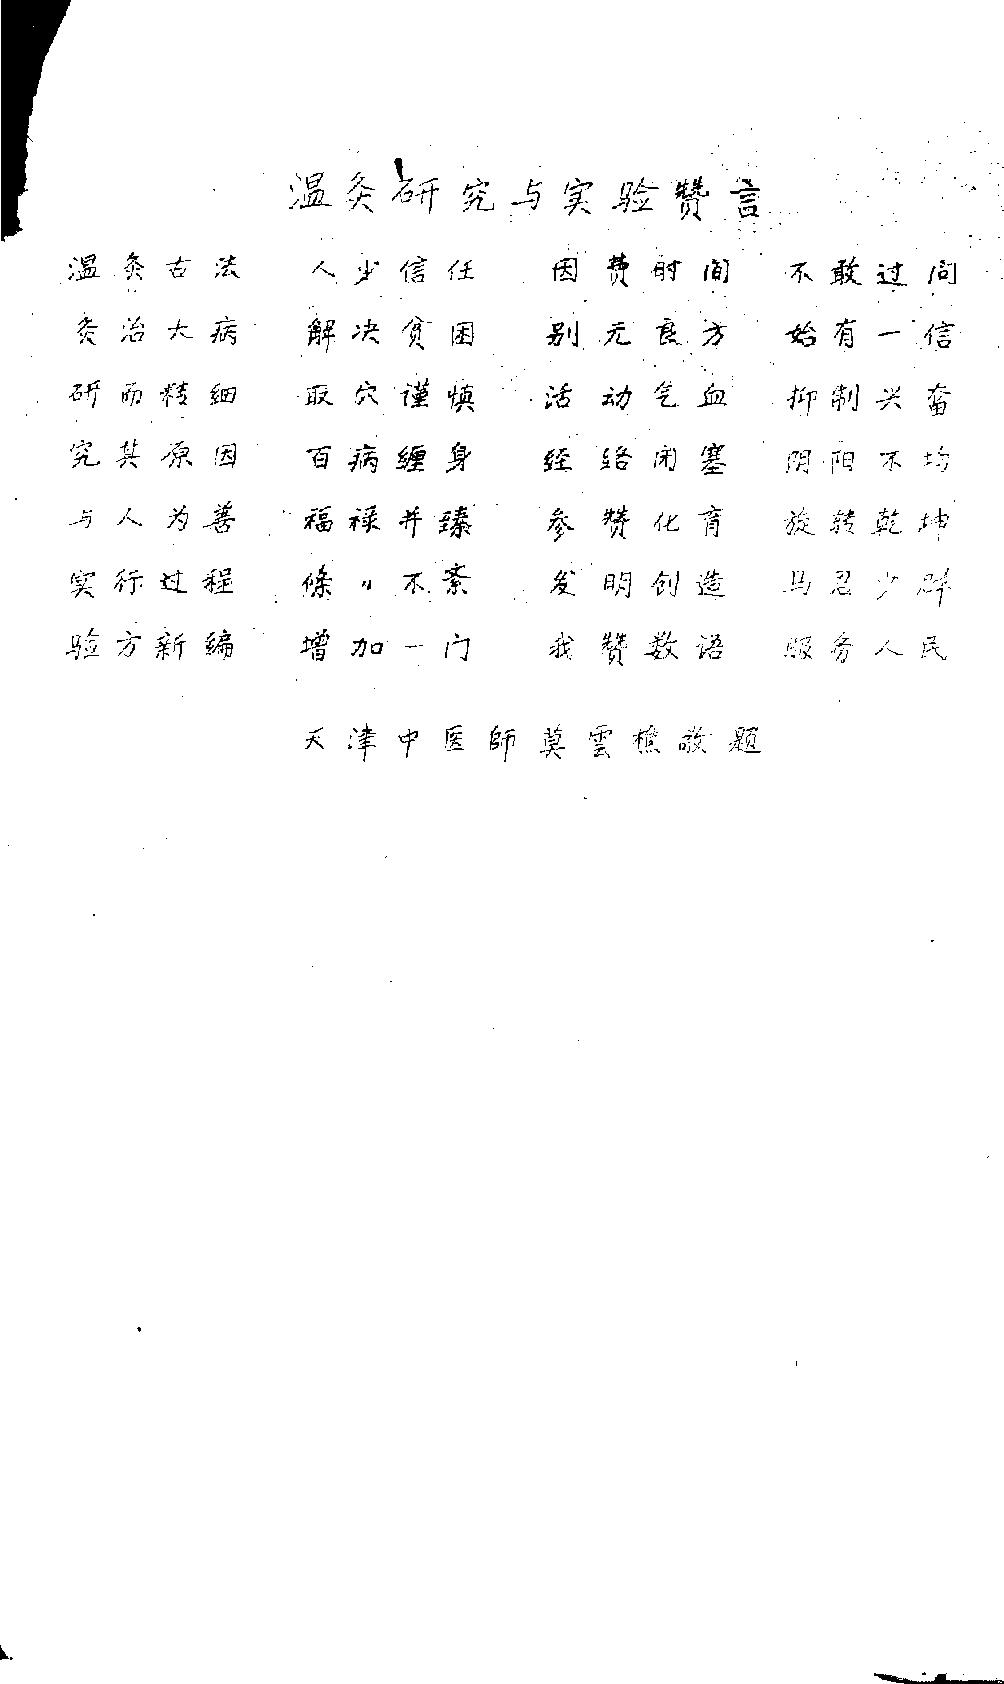 温灸研究与实验赞言
温灸古法 人少信任 因费时间 不敢过问
灸治大病 解决贫困 别无良方 始有一信
研而精细 取穴谨慎 活动气血 抑制兴奋
究其原因 百病缠身 经络闭塞 阴阳不均
与人为善 福禄并臻 参赞化育 旋转乾坤
实行过程 條〃不紊 发明创造 少
验方新编 增加一门 我赞数语 服务人民
天津中医師莫雲樵敬题